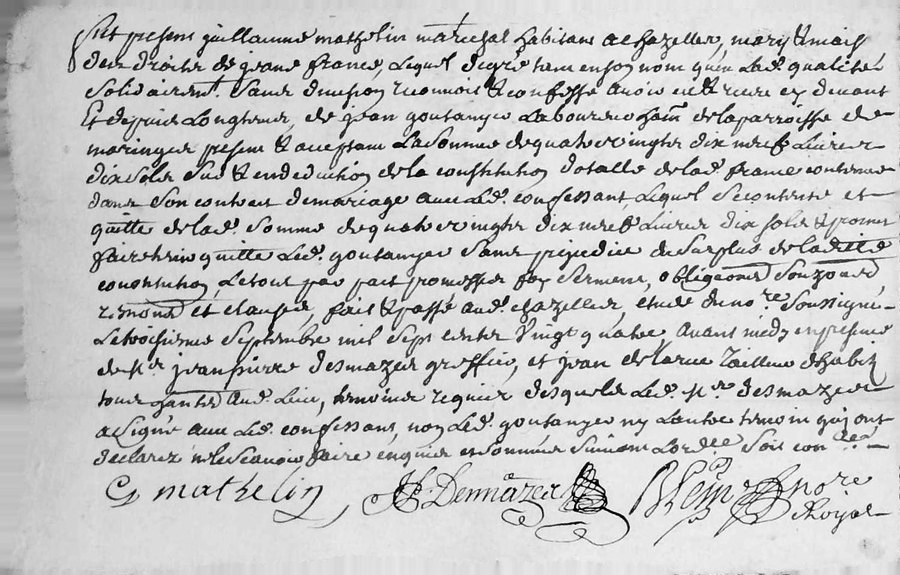 fut present guillaume mathelin marechal habitant a chazelles, mary & mais
des droits de jeane france, Lequel degre tant enson nom quen Lad. qualité
solidairemt. sans division reconnoit & confesse avoir eu & receu cy devant
Et depuis Longtemps, de jean goutanyer Laboureur de la parroisse de
maringes present & acceptant La somme de quatre vingts dix neuf Livres
dix sols sur & en deduction de la constitution dotalle de lad. france contenue
dans son contrat de mariage avec Led. confessant, Lequel se contente et
quitte de lad. somme de quatre vingts dix neuf Livres dix sols & promet
faire tenir quitte Led. goutanyer sans prejudice du surplus de la ditte
constitution, Le tout par pact promesses foy serment, obligeons
renons et clauses, fait & passé aud. chazelles, etude du nore. soussigné
Le troisieme septembre mil sept cents vingt quatre avant midy en presence
de sr jean pierre desmazes greffier, et jean delarue tailleur d'habit
tous aud. Lieu, temoins requis desquels Led. sr. desmazes
a signé avec Led. confessant, non Led. goutanyer ny Lautre temoin qui ont
declarez ne le scavoir faire enquis et sommés suivant Lordce soit con
G mathelin Desmazes nore
Royal